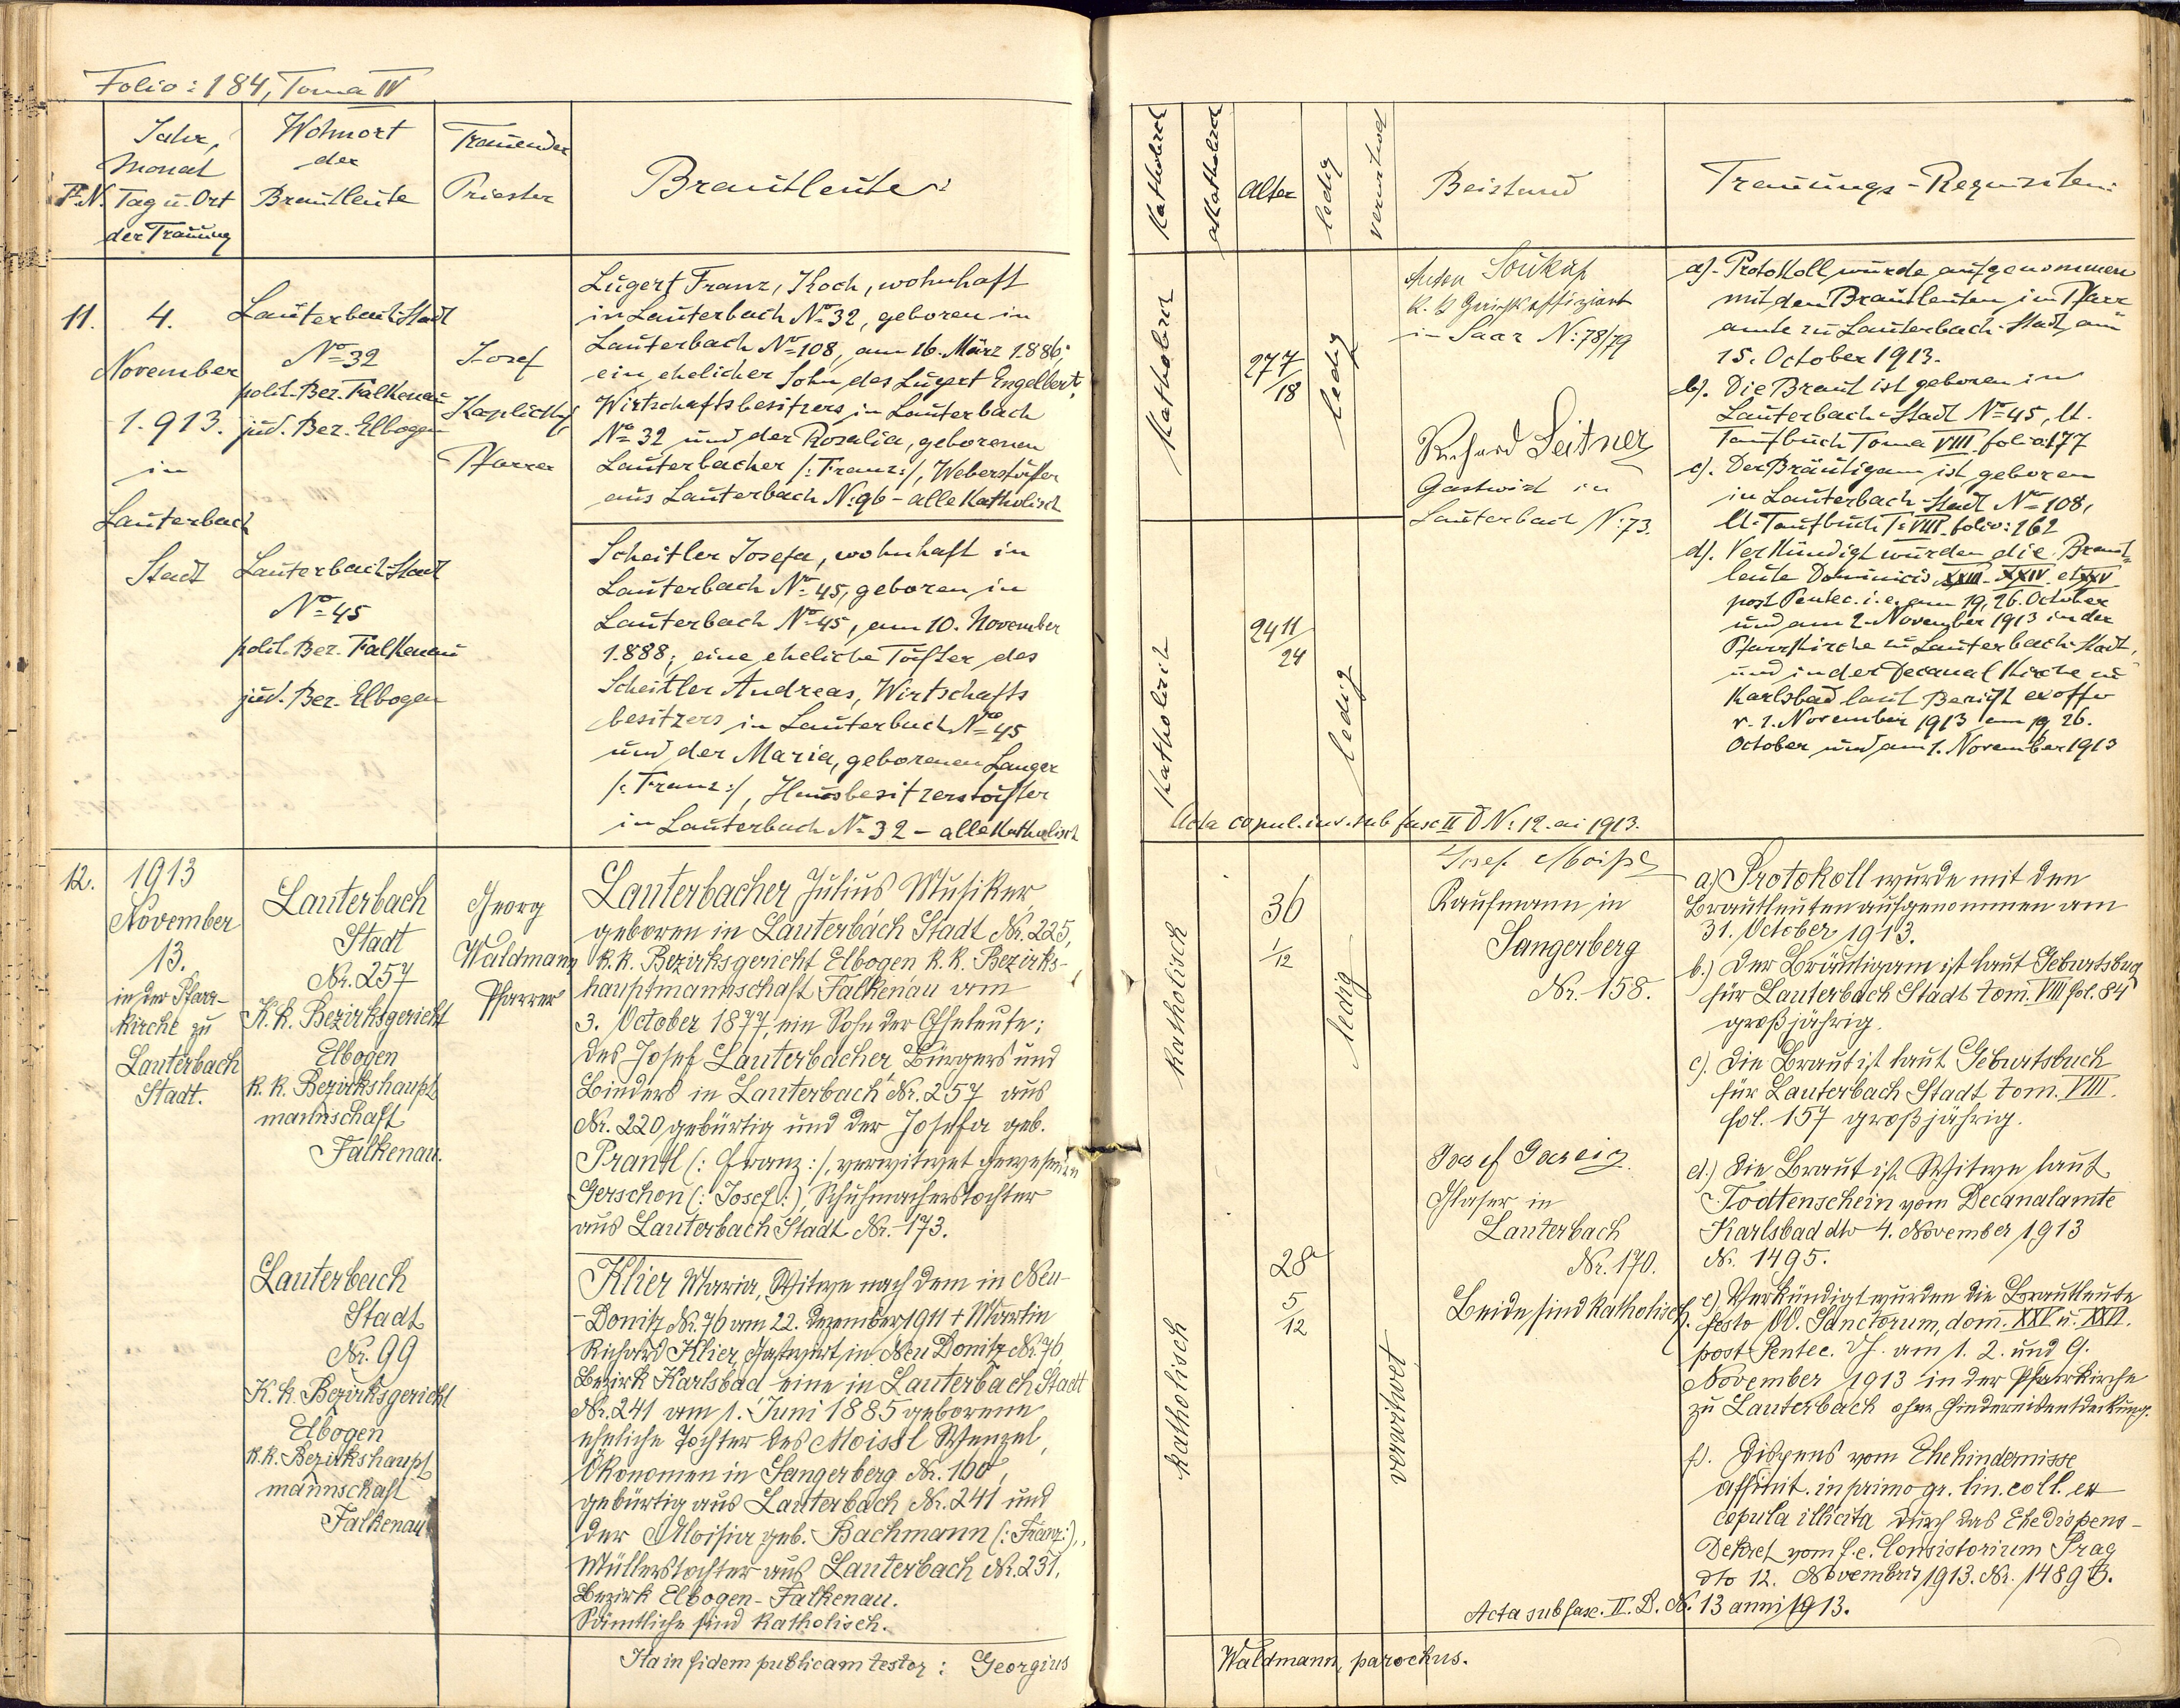 Folio: 184, Toma IV
P. N.
Jahr,
Monat
Tag u. Ort
der Trauung
Wohnort
der
Brautleute
Trauender
Priester
Brautleute:
11.
4.
November
1.913.
in
Lauterbach
Stadt
Lauterbach-Stadt
No 32
polit. Bez. Falkenau
jud. Bez. Elbogen
Lauterbach-Stadt
No 45
polit. Bez. Falkenau
jud. Bez. Elbogen
Josef
Kaplický
Pfarrer
Lugert Franz, Koch, wohnhaft
in Lauterbach No 32, geboren in
Lauterbach No 108, am 16. März 1.886;
ein ehelicher Sohn des Lugert Engelbert,
Wirtschaftsbesitzers in Lauterbach
No 32 und der Rosalia, geborenen
Lauterbacher /: Franz :/, Weberstochter
aus Lauterbach N: 96 - alle katholisch
Scheitler Josefa, wohnhaft in
Lauterbach No 45, geboren in
Lauterbach No 45, am 10. November
1.888; eine eheliche Tochter des
Scheitler Andreas, Wirtschafts
besitzers in Lauterbach No 45
und der Maria, geborenen Langer
/: Franz :/, Hausbesitzerstochter
in Lauterbach No 32 - alle katholisch
12.
1913
November
13.
in der Pfarr-
kirche zu
Lauterbach
Stadt.
Lauterbach
Stadt
Nr. 257
K. k. Bezirksgericht
Elbogen
k. k. Bezirkshaupt
mannschaft
Falkenau.
Lauterbach
Stadt
Nr. 99
K. k. Bezirksgericht
Elbogen
k. k. Bezirkshaupt
mannschaft
Falkenau
Georg
Waldmann
Pfarrer
Lauterbacher Julius, Musiker
geboren in Lauterbach Stadt Nr. 225,
k. k. Bezirksgericht Elbogen k. k. Bezirks-
hauptmannschaft Falkenau am
3. October 1877, ein Sohn der Eheleute:
des Josef Lauterbacher, Bürgers und
Binders in Lauterbach Nr. 257 aus
Nr. 220 gebürtig und der Josefa geb.
Prantl (: Franz :), verwitwet gewesenen
Gerschon (: Josef :), Schuhmacherstochter
aus Lauterbach Stadt Nr. 173.
Klier Maria, Witwe nach dem in Neu-
-Donitz Nr. 76 am 22. Dezember 1911 + Martin
Richard Klier, Gastwirt in Neu Donitz Nr. 76
Bezirk Karlsbad eine in Lauterbach Stadt
Nr. 241 am 1. Juni 1885 geborene
eheliche Tochter des Moissl Wenzel,
Ökonomen in Sangerberg Nr. 160,
gebürtig aus Lauterbach Nr. 241 und
der Aloisia geb. Bachmann (: Franz :),
Müllerstochter aus Lauterbach Nr. 231,
Bezirk Elbogen-Falkenau.
Sämtliche sind katholisch.
Ita in fidem publicam testor: Georgius
Katholisch
Akatholisch
Alter
ledig
verwitwet
Beistand
Trauungs-Requisiten:
Katholisch
27 7/18
ledig
Anton Soukup
k. k. Gerichtsoffiziant
in Saaz N: 78/79
Richard Leitner
Gastwirt in
Lauterbach N: 73.
Katholisch
24 11/24
ledig
a). Protokoll wurde aufgenommen
mit den Brautleuten im Pfarr
amte zu Lauterbach-Stadt, am
15. October 1913.
b). Die Braut ist geboren in
Lauterbach-Stadt No 45, lt.
Taufbuch Toma VIII folio: 177
c). Der Bräutigam ist geboren
in Lauterbach-Stadt No 108,
lt. Taufbuch T: VIII. folio: 162
d). Verkündigt wurden die Braut
leute Dominicis XXIII. XXIV. et XXV
post Pentec. i. e. am 19, 26. October
und am 2. November 1913 in der
Pfarrkirche zu Lauterbach-Stadt,
und in der Decanalkirche zu
Karlsbad laut Bericht ex offo
v. 2. November 1913 am 19, 26.
October und am 1. November 1913
Acta copul. inv. sub fasc II D N: 12. ai 1913.
katholisch
36
1/12
ledig
Josef Moißl
Kaufmann in
Sangerberg
Nr. 158.
Josef
Glaser in
Lauterbach
Nr. 170.
Beide sind katholisch.
katholisch
28
5/12
verwitwet
a.) Protokoll wurde mit den
Brautleuten aufgenommen am
31. October 1913.
b.) Der Bräutigam ist laut Geburtsbuch
für Lauterbach Stadt tom. VIII fol. 84
großjährig.
c). Die Braut ist laut Geburtsbuch
für Lauterbach Stadt tom. VIII.
fol. 157 großjährig.
d.) Die Braut ist Witwe laut
Todtenschein vom Decanalamte
Karlsbad dto 4. November 1913
Nr. 1495.
e) Verkündigt wurden die Brautleute
festo OO. Sanctorum, dom. XXV u. XXVI.
post Pentec. d. i. am 1. 2. und 9.
November 1913 in der Pfarrkirche
zu Lauterbach ohne Hindernisentdeckung.
f). Dispens vom Ehehindernisse
affinit. in primo gr. lin. coll. ex
copula illicita durch das Ehedispens-
Dekret vom f. e. Consistorium Prag
dto 12. November 1913. Nr. 14896.
Acta sub fasc. II. D. N. 13 anni 1913.
Waldmann, parochus.